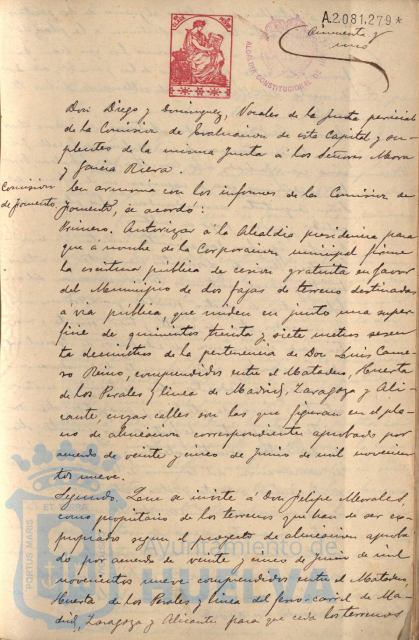 A.2081,279*
Cincuenta y
uno
ALCALDIA CONSTITUCIONAL DE
Don Diego y Dominguez, Vocales de la Junta pericial
de la Comision de Evaluacion de esta Capital y su-
plentes de la misma Junta á los Señores Mora
y Garcia Riera.
Comision
de Fomento
En armonia con los informes de la Comision de
Fomento, se acordó:
Primero. Autorizar á la Alcaldia presidencia para
que á nombre de la Corporacion municipal firme
la escritura pública de cesion gratuita en favor
del Municipio de dos fajas de terreno destinadas
a via pública, que miden en junto una super-
ficie de quinientos treinta y siete metros sesen-
ta decimetros de la pertenencia de Don Luis Came-
ro Reino, comprendidos entre el Matadero, Huerta
de los Perales y linea de Madrid, Zaragoza y Ali-
cante, cuyas calles son las que figuran en el pla-
no de alineacion correspondiente aprobado por
acuerdo de veinte y cinco de Junio de mil novecien-
tos nueve.
Segundo. Que se invite á Don Felipe Morales
como propietario de los terrenos que han de ser ex-
propiados segun el proyecto de alineacion aproba-
do por acuerdo de veinte y cinco de Junio de mil
novecientos nueve comprendidos entre el Matadero,
Huerta de los Perales y linea del ferro-carril de Ma-
drid, Zaragoza y Alicante para que ceda los terrenos
PORTUS MARIS
ET
Ayuntamiento de
HUELVA